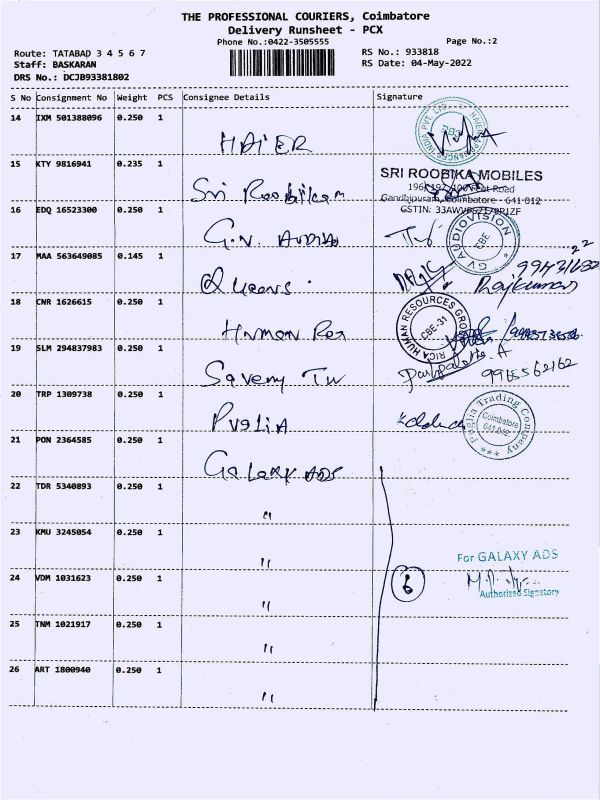 THE PROFESSIONAL COURIERS, Coimbatore
Delivery Runsheet - PCX
Phone No.:0422-3505555
Page No.:2
Route: TATABAD 3 4 5 6 7
RS No.: 933818
Staff: BASKARAN
RS Date: 04-May-2022
DRS No.: DCJB93381802
S No Consignment No Weight PCS Consignee Details Signature
14 IXM 501388096 0.250 1
HAIER
15 KTY 9816941 0.235 1
SRI ROOBIKA MOBILES
Gandhipuram, Coimbatore - 641 012
GSTIN:
Sri Roobikam
16 EDQ 16523300 0.250 1
G.V. AUDIO
GV AUDIOVISION
CBE
17 MAA 563649085 0.145 1
Queens
Rajkumar
18 CNR 1626615 0.250 1
Human Res
RICA HUMAN RESOURCES GROUP
CBE-31
19 SLM 294837983 0.250 1
9965562162
20 TRP 1309738 0.250 1
PugliA
Puglia Trading Company
Coimbatore
641 012
21 PON 2364585 0.250 1
Galaxy ADS
22 TDR 5340893 0.250 1
"
23 KMU 3245054 0.250 1
"
For GALAXY ADS
24 VDM 1031623 0.250 1
6
Authorized Signatory
"
25 TNM 1021917 0.250 1
"
26 ART 1800940 0.250 1
"